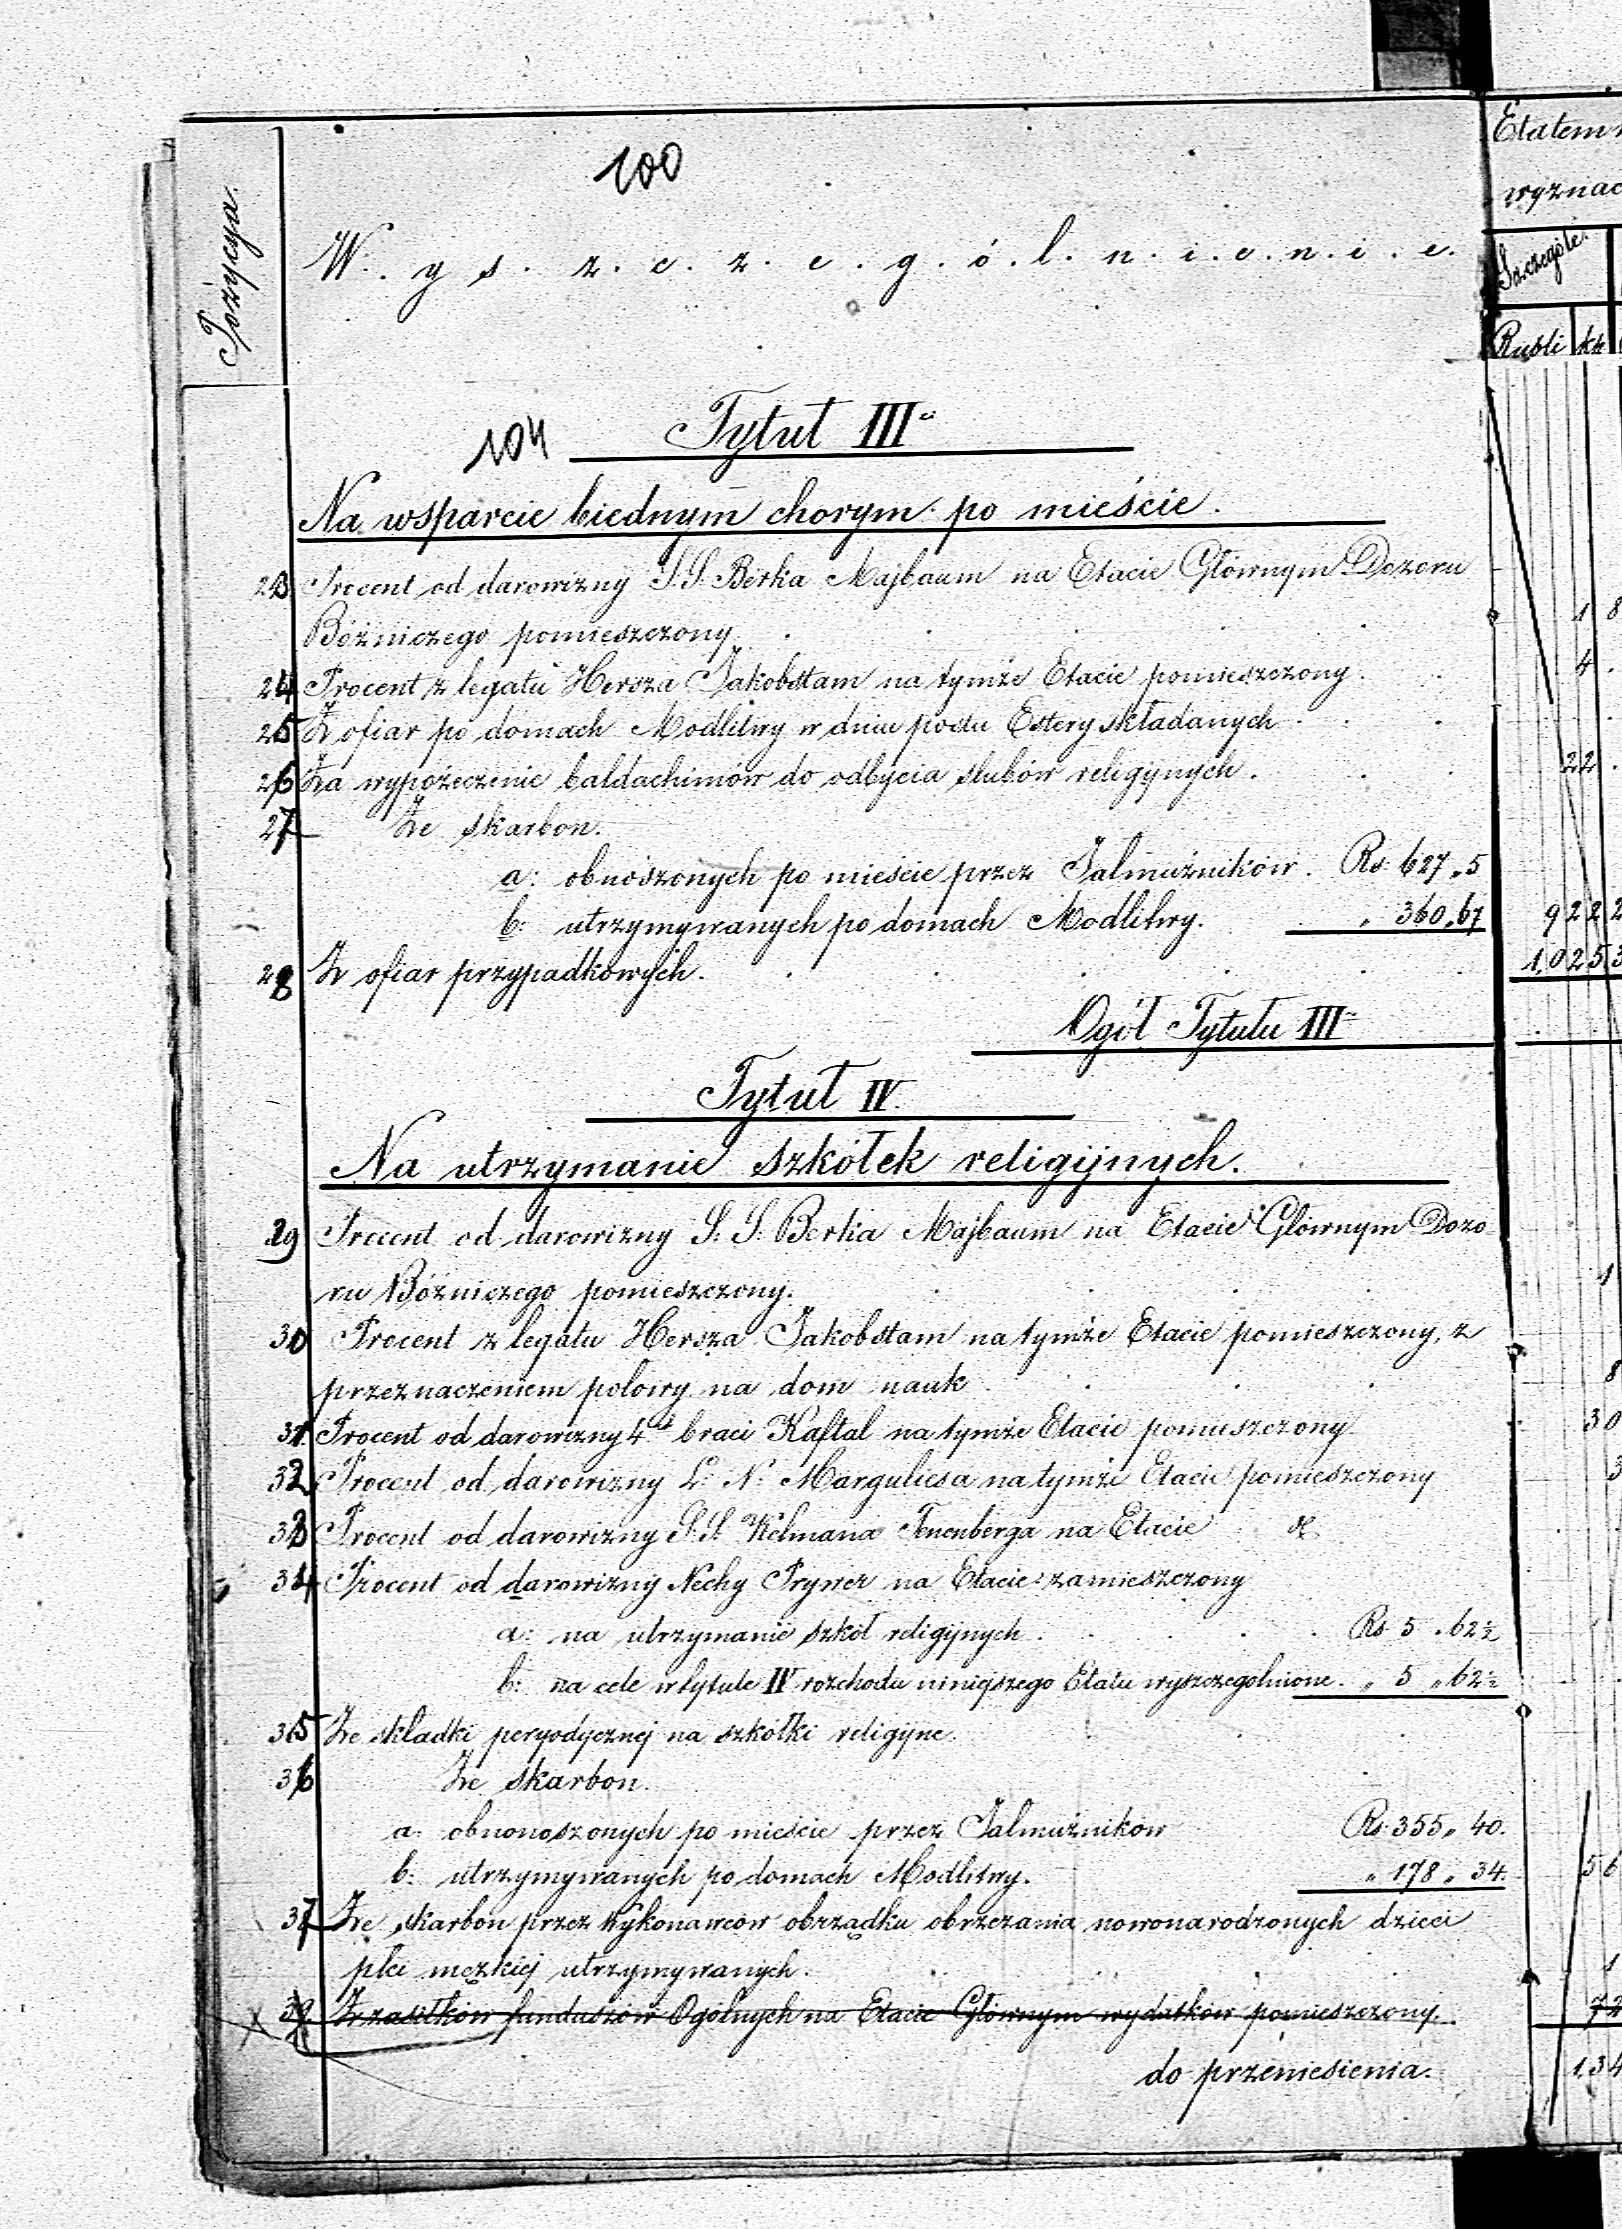 100
Etatem
wyznac
Pozycya.
W. y s. z. c. z. e. g. ó. l. n. i. e. n. i. e.
Szczególe
Rubli kk
104 Tytuł III
Na wsparcie biednym chorym po mieście.
23 Procent od darowizny S. S. Berka Majbaum na Etacie Głównym Dozoru
Bóżniczego pomieszczony. 1 8
24 Procent z legatu Hersza Jakobstam na tymże Etacie pomieszczony. 4 .
25 Z ofiar po domach Modlitwy w dniu postu Estery składanych
26 Za wypożeczenie baldachimów do odbycia ślubów religijnych. 22 .
27 Ze skarbon.
a: obnoszonych po mieście przez Jałmużników. Rs. 627 „ 5
b: utrzymywanych po domach Modlitwy. „ 360 „ 67 922 2
28 Z ofiar przypadkowych. 1,025 3
Ogół Tytułu III
Tytuł IV.
Na utrzymanie szkółek religijnych.
29 Procent od darowizny S. S. Berka Majbaum na Etacie Głównym Dozo-
ru Bóżniczego pomieszczony. 1
30 Procent z legatu Hersza Jakobstam na tymże Etacie pomieszczony, z
przeznaczeniem połowy na dom nauk 8
31 Procent od darowizny 4ch braci Kaftal na tymże Etacie pomieszczony 30
32 Procent od darowizny L. N. Marguliesa na tymże Etacie pomieszczony 3
33 Procent od darowizny S. S. Kelmana Tenenberga na Etacie
34 Procent od darowizny Nechy Prywer na Etacie zamieszczony
a: na utrzymanie szkół religijnych. Rs 5 . 62½
b: na cele w tytule IV rozchodu niniejszego Etatu wyszczególnione. „ 5 „ 62½
35 Ze składki peryodycznej na szkółki religijne.
36 Ze skarbon.
a. obnonoszonych po mieście przez Jałmużników Rs. 355 „ 40.
b: utrzymywanych po domach Modlitwy. „ 178 „ 34. 56
37 Ze skarbon przez wykonawców obrządku obrzezania nowonarodzonych dzieci
płci męzkiej utrzymywanych. 1
Z zasiłków funduszów Ogólnych na Etacie Głównym wydatków pomieszczony. 72
do przeniesienia. 134